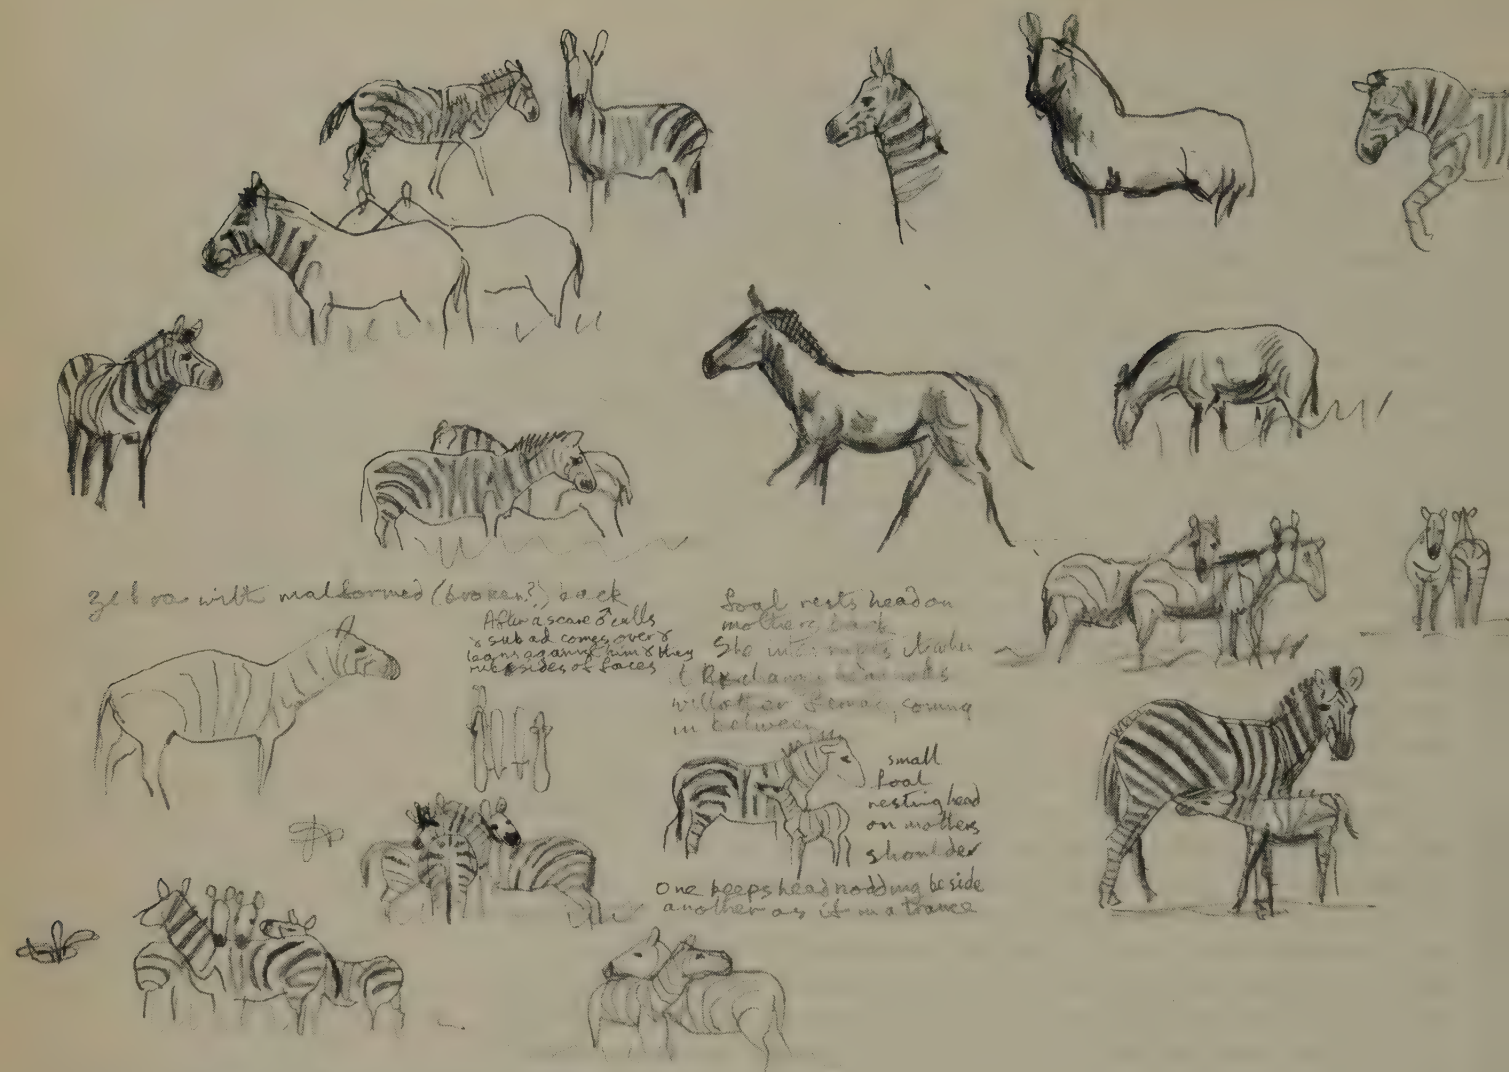 zebra with malformed (broken?) back
After a scare ♂ calls
& sub ad comes over &
leans against him & they
rub sides of faces
foal rests head on
mothers back
She
with other female, coming
in between
small
foal
resting head
on mothers
shoulder
One keeps head nodding beside
another as if in a trance